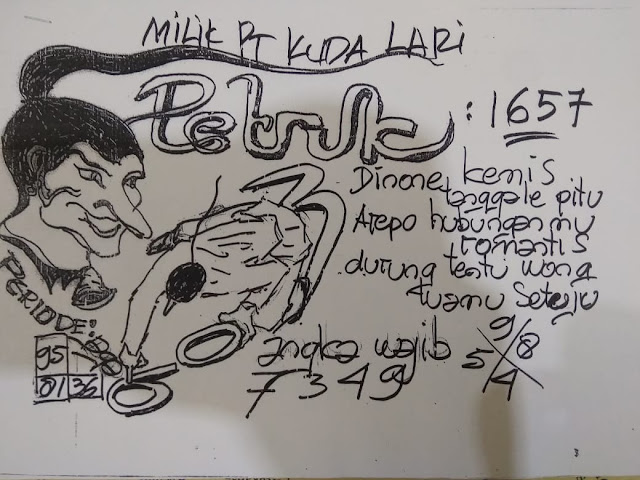 MILIK PT KUDA LARI
Petruk : 1657
Dinone kemis
tanggale pitu
Arepo hubungan mu
romantis
durung tentu wong
tuamu setuju
PERIODE:
95
81 36
angka wajib
7 3 4 9
9/8
5/4